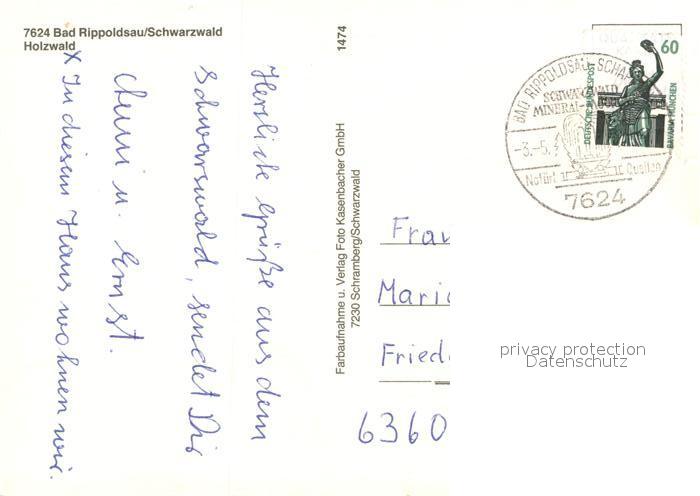 7624 Bad Rippoldsau/Schwarzwald
Holzwald
Herzliche Grüße aus dem
Schwarzwald, sendet Dir
Anni u. Ernst.
X In diesem Haus wohnen wir.
1474
Farbaufnahme u. Verlag Foto Kasenbacher GmbH
7230 Schramberg/Schwarzwald
60
DEUTSCHE BUNDESPOST
BAVARIA MÜNCHEN
BAD RIPPOLDSAU-SCHA
SCHWARZWALD
MINERAL-
-3.-5.
Quellen
7624
Frau
Mari
Fried
6360
privacy protection
Datenschutz